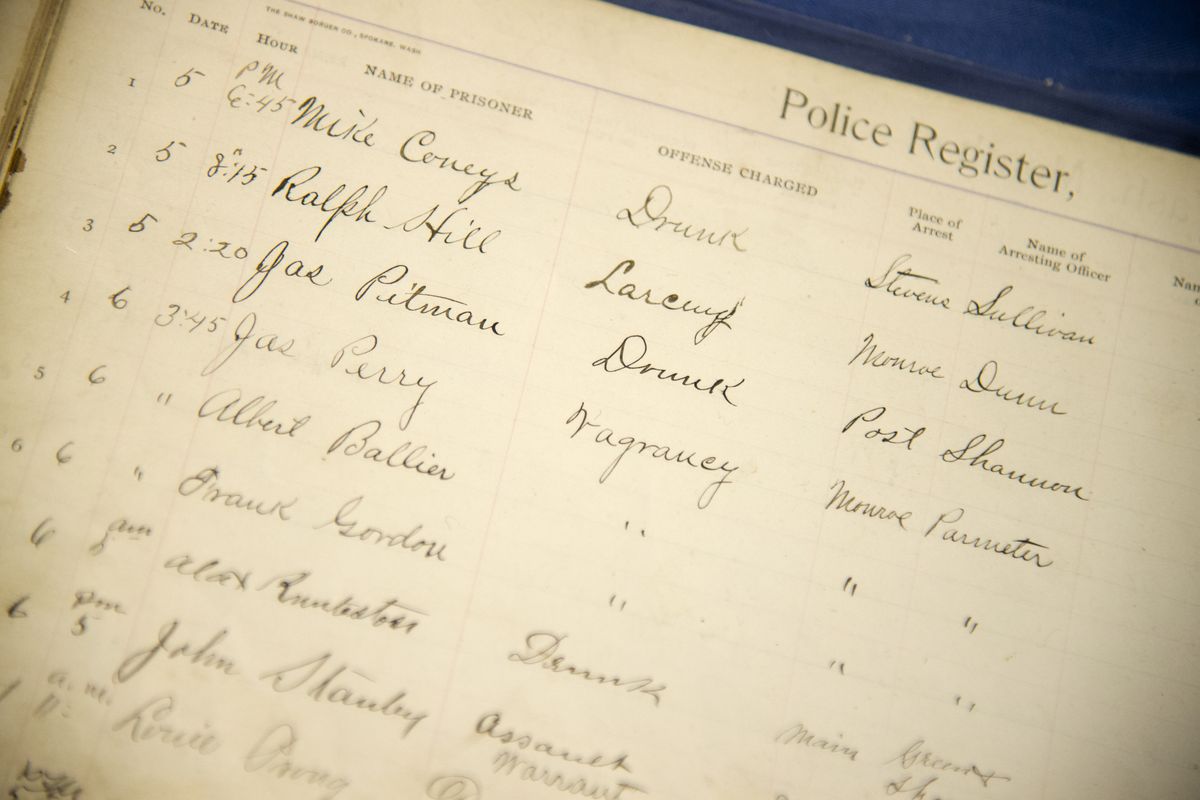 THE SHAW BORDEN CO., SPOKANE, WASH.
Police Register,
No. DATE HOUR NAME OF PRISONER OFFENSE CHARGED Place of Arrest Name of Arresting Officer
1 5 PM 6:45 Mike Coneys Drunk Stevens Sullivan
2 5 8:15 Ralph Hill Larceny Monroe Dunn
3 5 2:20 Jas Pitman Drunk Post Shannon
4 6 3:45 Jas Perry Vagrancy Monroe Parmeter
5 6 " Albert Ballier " " "
6 6 " Frank Gordon " " "
6 am Drunk Main
6 pm 5 John Stanley Assault Warrant
a.m. Louie